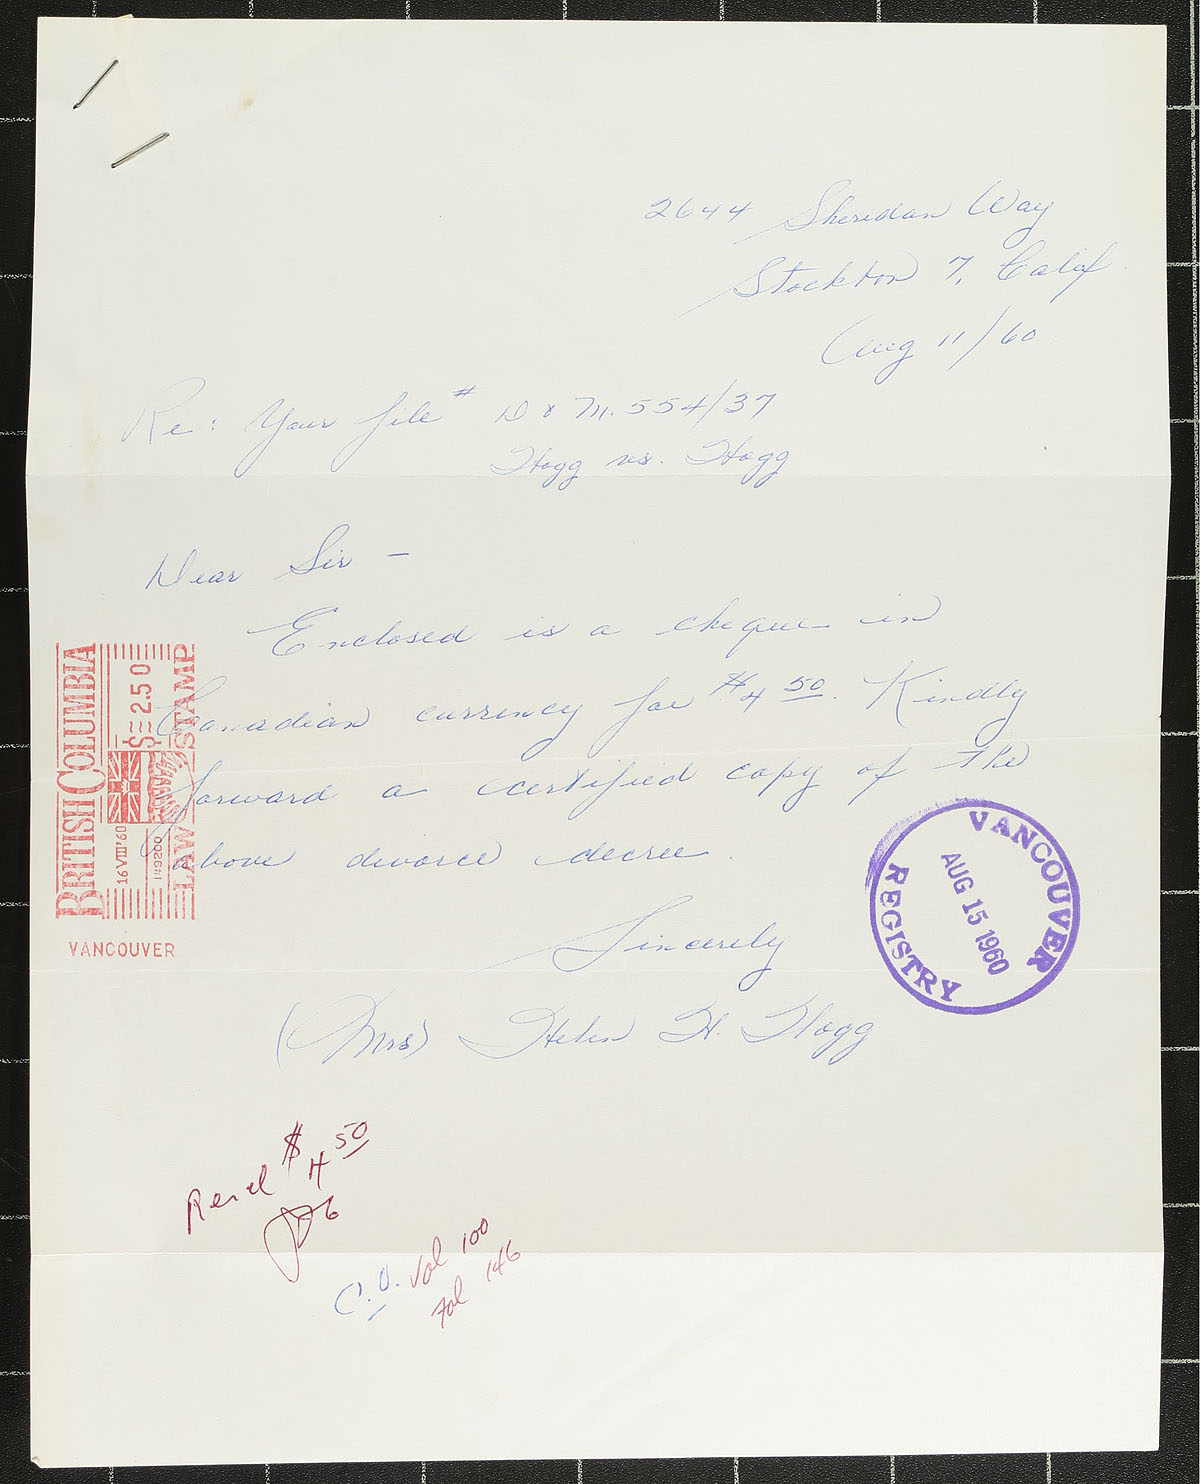 2644 Sheridan Way
Stockton 7, Calif
Aug 11/60
Re: Your file # D & M. 554/37
Hogg vs. Hogg
Dear Sir –
Enclosed is a cheque in
Canadian currency for $4 50. Kindly
forward a certified copy of the
above divorce decree.
Sincerely
(Mrs) Helen H. Hogg
BRITISH COLUMBIA
$≈2.50
16 VIII '60
149200
LAW STAMP
VANCOUVER
VANCOUVER
AUG 15 1960
REGISTRY
$4 50
C.O. Vol 100
Fol 146